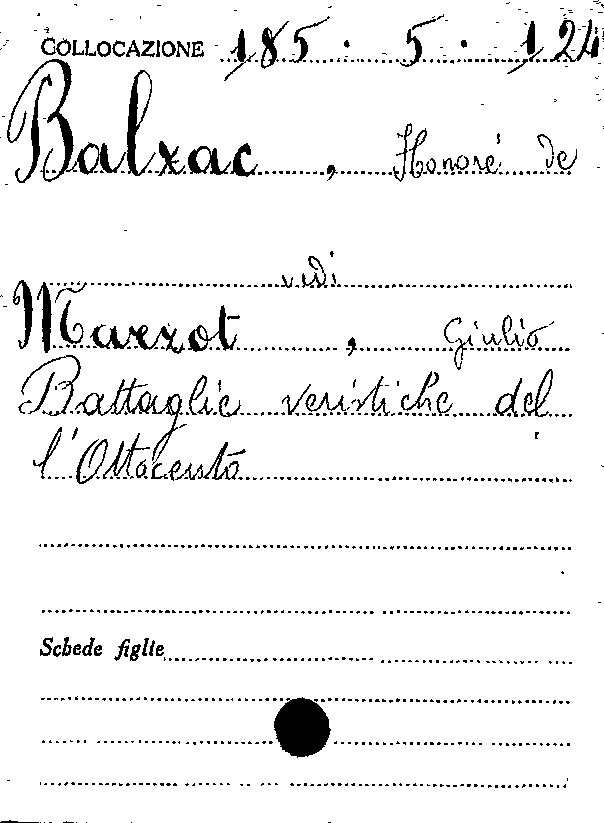 COLLOCAZIONE 185 . 5 . 124
Balzac , Honoré de
vedi
Marzot , Giulio
Battaglie veristiche del
l'Ottocento
Schede figlie